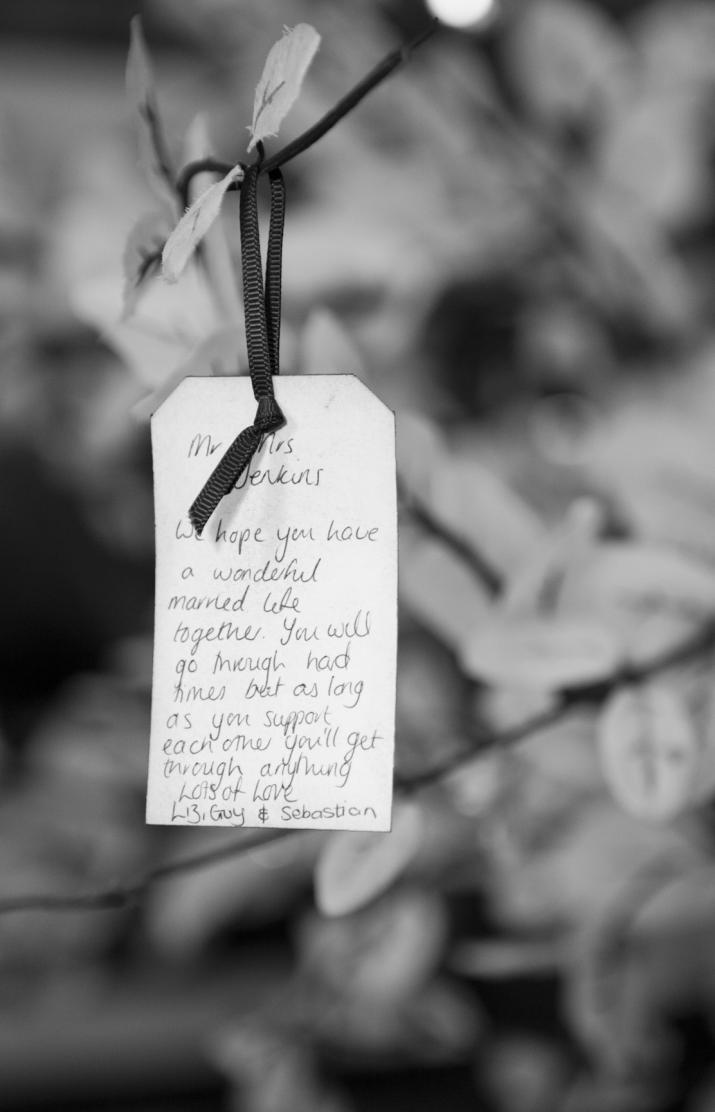 Mr Mrs
Jenkins
We hope you have
a wonderful
married life
together. You will
go through hard
times but as long
as you support
each other you'll get
through anything
Lots of Love
Liz, Guy & Sebastian